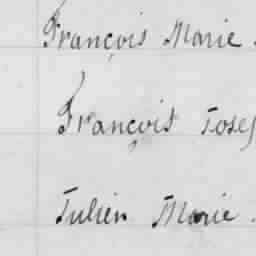 François Marie.
François Josep
Julien Marie.